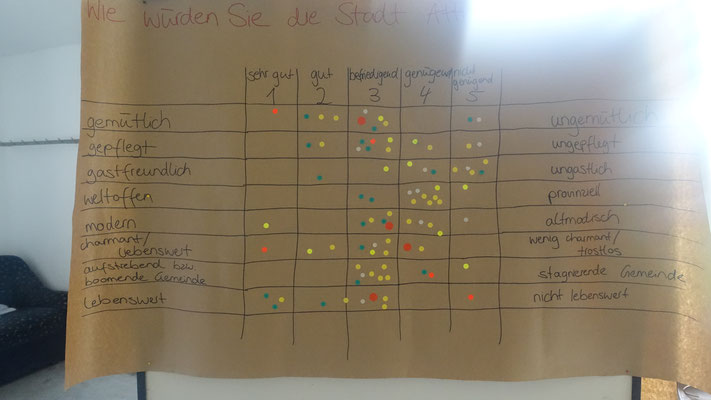 Wie würden Sie die Stadt
sehr gut gut befriedigend genügend nicht genügend
1 2 3 4 5
gemütlich ungemütlich
gepflegt ungepflegt
gastfreundlich ungastlich
weltoffen provinziell
modern altmodisch
charmant/ wenig charmant/
liebenswert trostlos
aufstrebend bzw. stagnierende Gemeinde
boomende Gemeinde
lebenswert nicht lebenswert